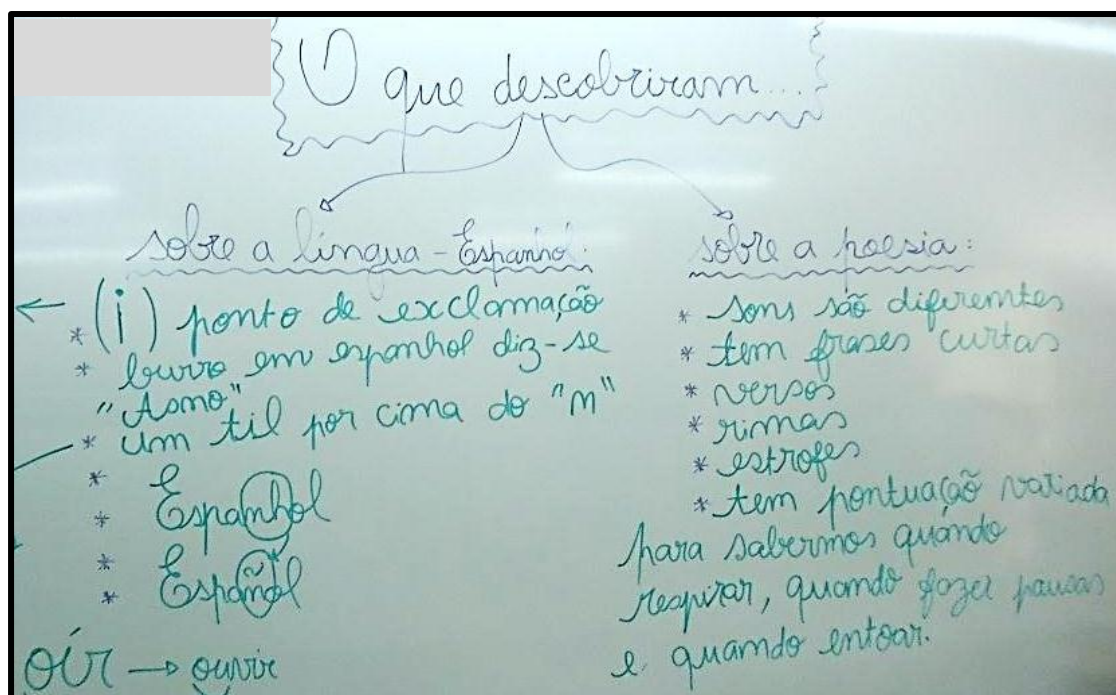 O que descobriram...
sobre a língua - Espanhol:
* (¡) ponto de exclamação
* burro em espanhol diz-se
"Asno"
* um til por cima do "n"
*
* Espanhol
*
* Español
oír → ouvir
sobre a poesia:
* sons são diferentes
* tem frases curtas
* versos
* rimas
* estrofes
* tem pontuação variada
para sabermos quando
respirar, quando fazer pausas
e quando entoar.